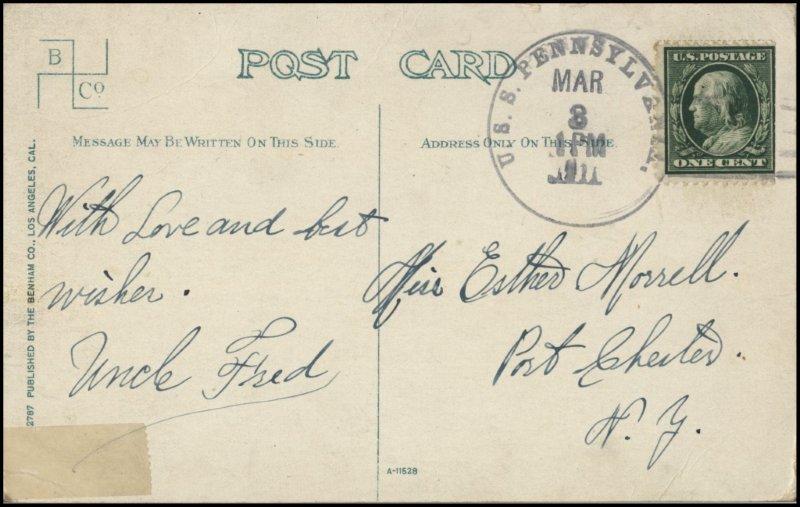 B
Co
POST CARD
MESSAGE MAY BE WRITTEN ON THIS SIDE.
ADDRESS ONLY ON THIS SIDE.
U.S.S. PENNSYLVANIA.
MAR
8
1 PM
1911
U.S. POSTAGE
ONE CENT
With Love and best
wishes.
Uncle Fred
Miss Esther Morrell.
Port Chester.
N. Y.
2787 PUBLISHED BY THE BENHAM CO., LOS ANGELES, CAL.
A-11528